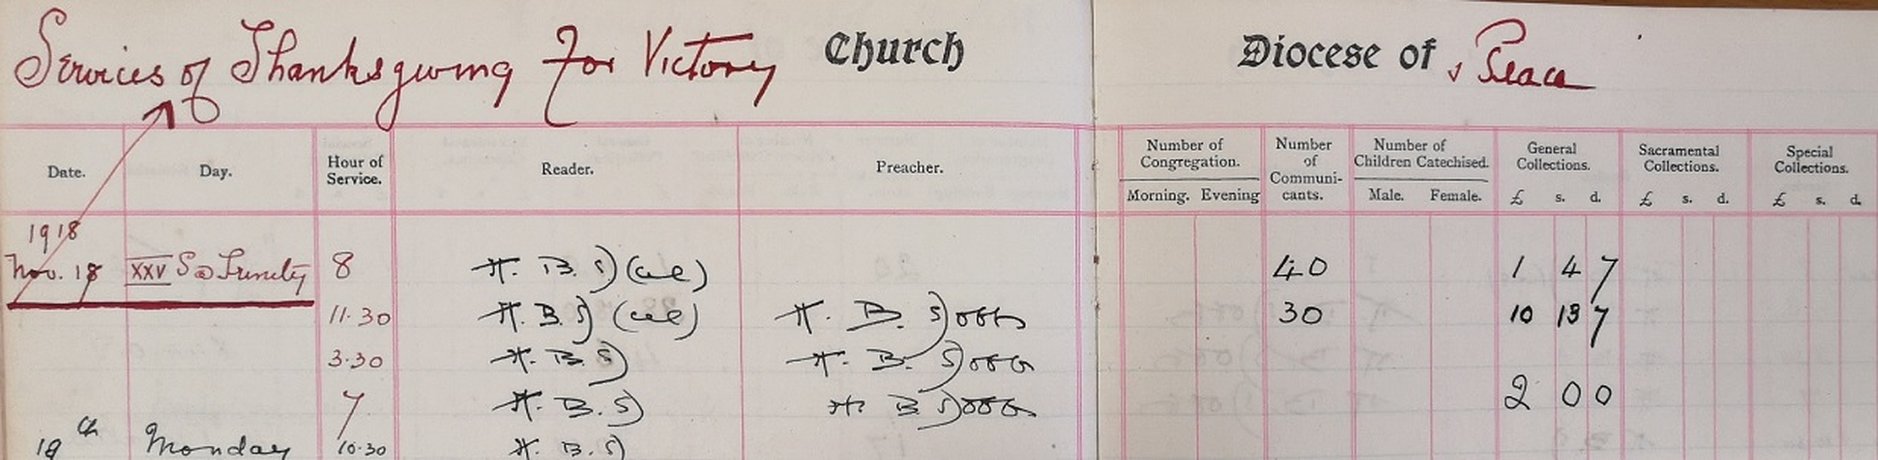 Services of Thanksgiving For Victory Church Diocese of & Peace
Date. Day. Hour of Service. Reader. Preacher. Number of Congregation. Morning. Evening Number of Communi-cants. Number of Children Catechised. Male. Female. General Collections. £ s. d. Sacramental Collections. £ s. d. Special Collections. £ s. d.
1918
Nov. 18 XXV S @ Trinity 8 H. B. S (cel) 40 1 4 7
11.30 H. B. S (cel) H. B. Scott 30 10 13 7
3.30 H. B. S H. B. Scott
7 H. B. S H. B. Scott 2 0 0
18th Monday 10.30 H. B. S